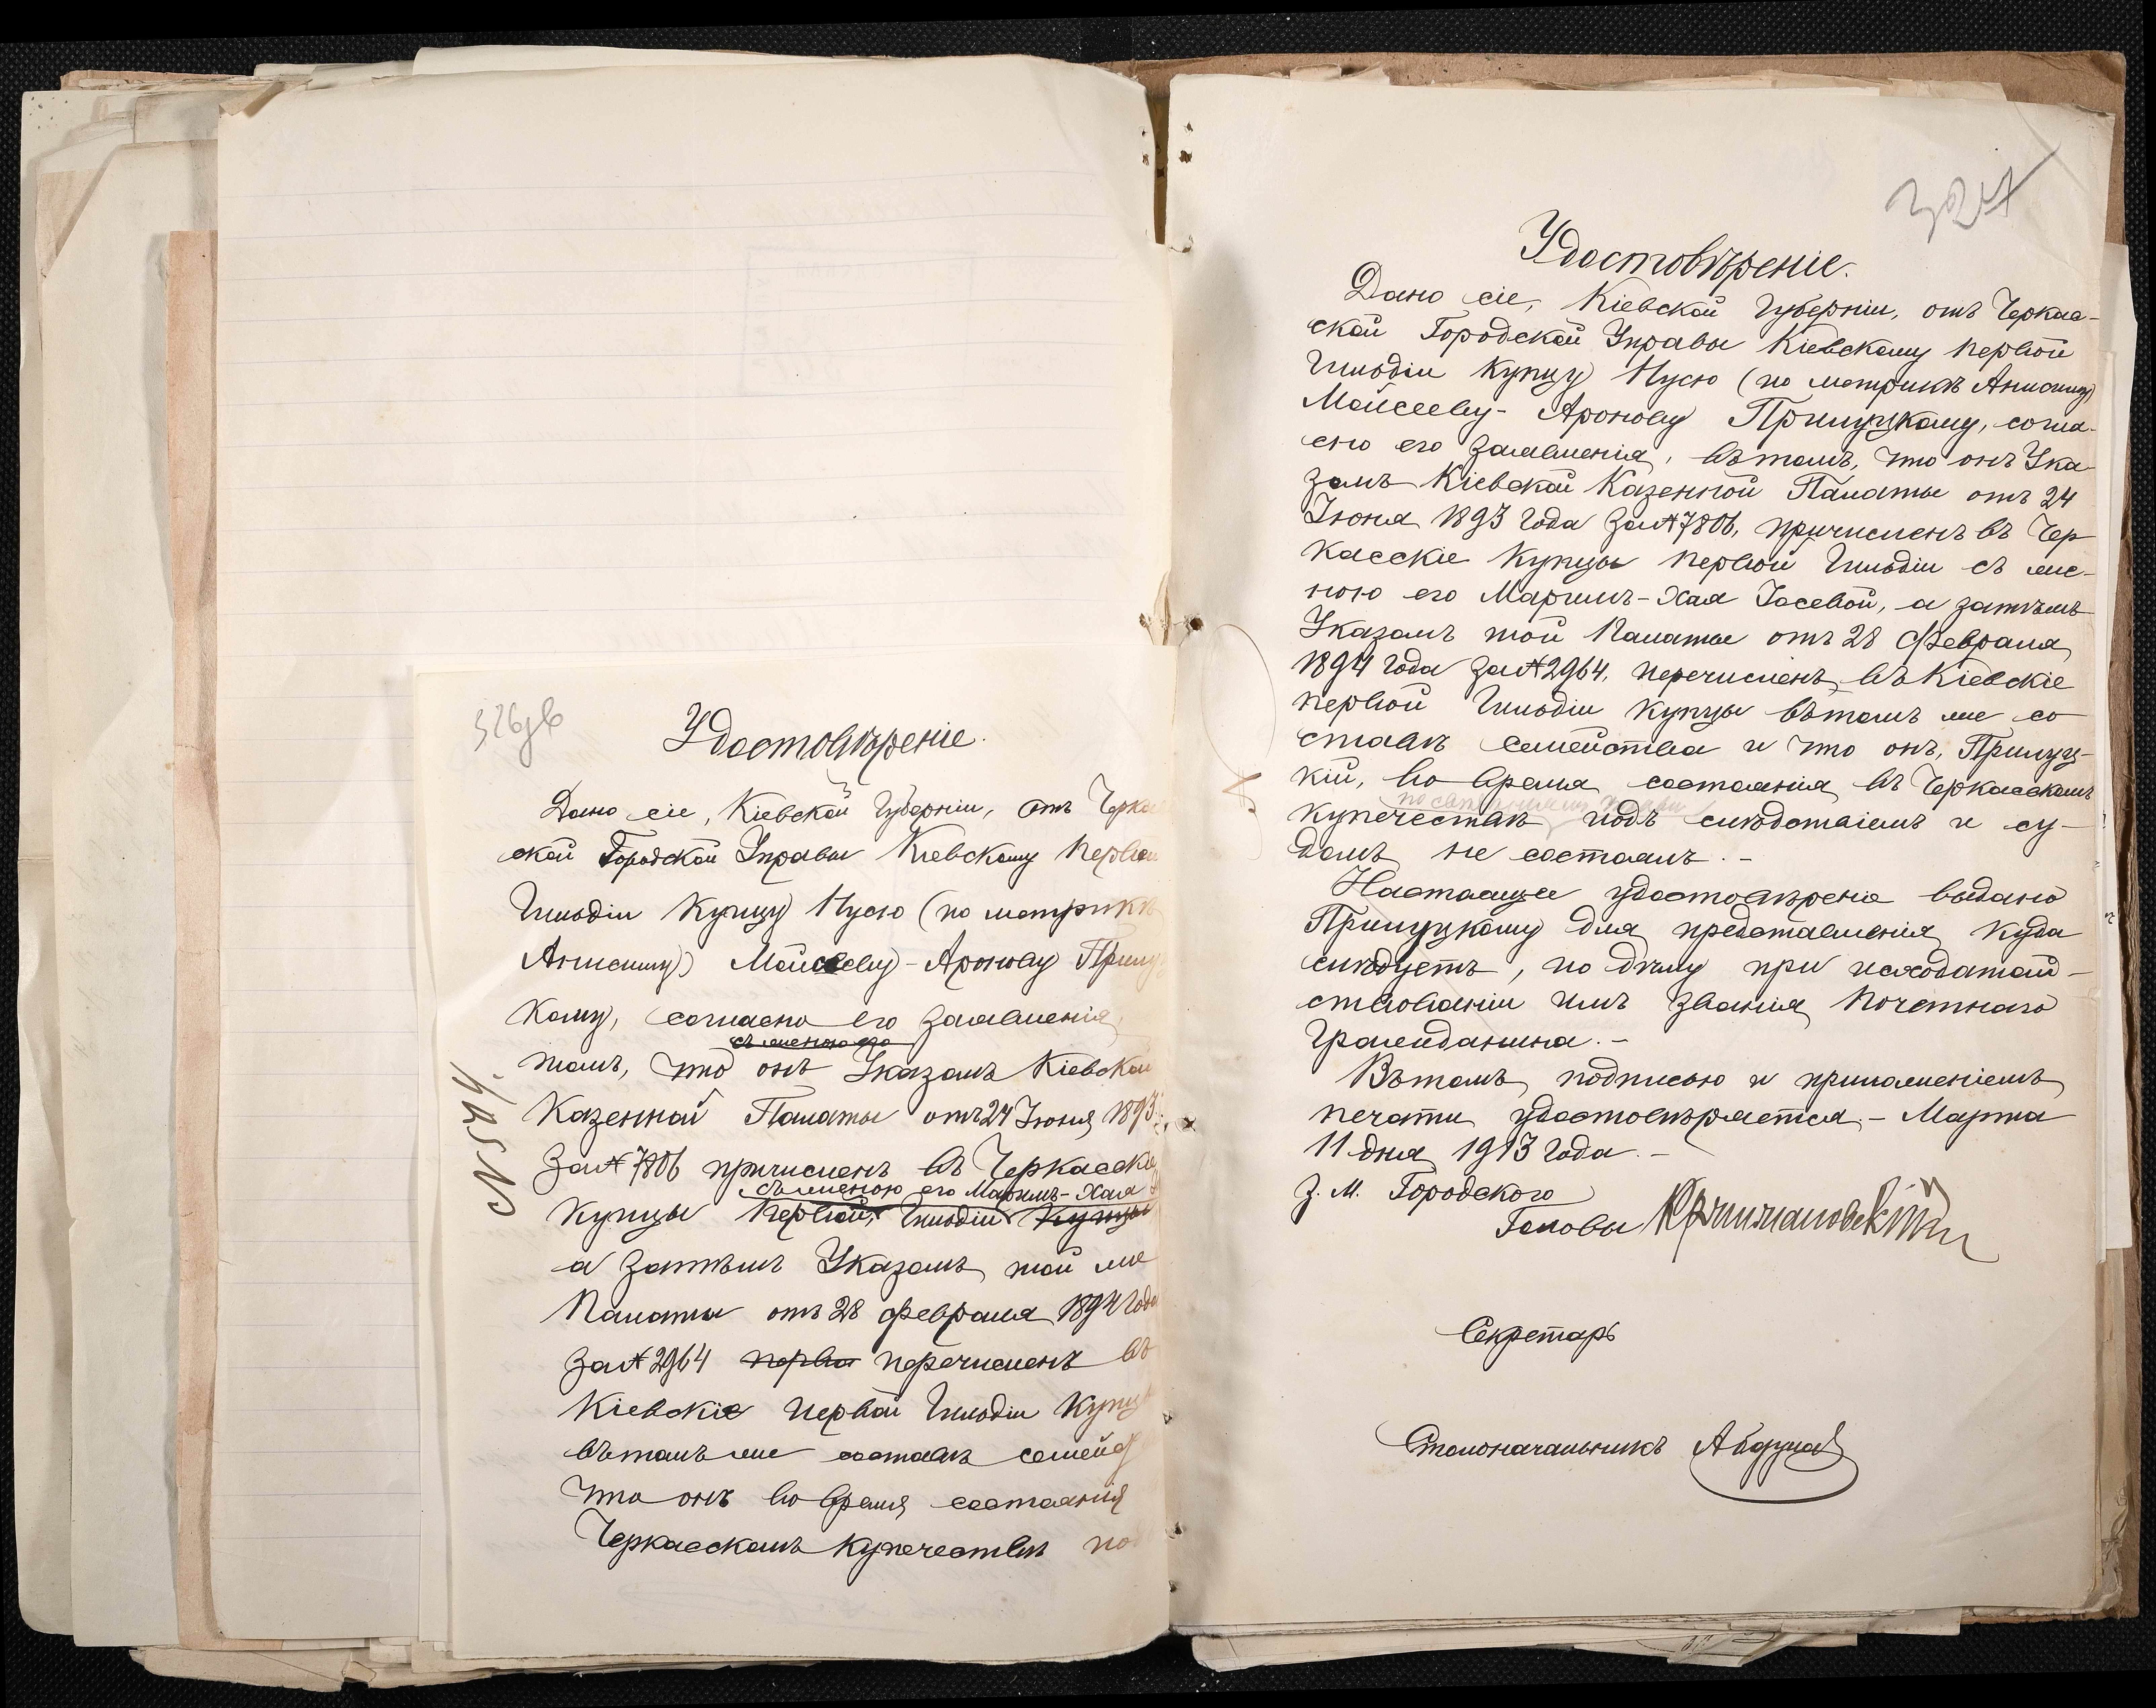 326
Удостовѣреніе.
Дано сіе, Кіевской губерніи, отъ Черка
ской Городской Управы Кіевскому первой
Гильдіи Купцу Нусю (по метрикѣ
Анисиму) Мойсееву-Аронову Прилу
кому, согласно его заявленія,
съ женою его
томъ, что онъ Указомъ Кіевской
№ 524.
Казенной Палаты отъ 24 Іюня 1893
за № 7806 причисленъ въ Черкасскіе
съ женою его Маріимъ-Хая
Купцы первой Гильдіи Купцы
а затѣмъ Указомъ той же
Палаты отъ 28 февраля 1894 года
за № 2964 перво перечисленъ въ
Кіевскіе первой Гильдіи Купц
въ томъ же составѣ семейс
что онъ во время состоянія
Черкасскомъ Купечествѣ по
327
Удостовѣреніе.
Дано сіе, Кіевской Губерніи, отъ Черкас-
ской Городской Управы Кіевскому первой
Гильдіи Купцу Нусю (по метрикѣ Анисиму)
Мойсееву-Аронову Прилуцкому, согла-
сно его заявленія, въ томъ, что онъ Ука-
зомъ Кіевской Казенной Палаты отъ 24
Іюня 1893 года за № 7806, причисленъ въ Чер-
касскіе Купцы первой Гильдіи съ же-
ною его Маріимъ-Хая Іосевой, а затѣмъ
Указомъ той Палаты отъ 28 Февраля
1894 года за № 2964, перечисленъ въ Кіевскіе
первой Гильдіи Купцы въ томъ же со
ставѣ семейства и что онъ, Прилуц-
кій, во время состоянія въ Черкасскомъ
купечествѣ подъ слѣдствіемъ и су-
домъ не состоялъ. -
Настоящее удостовѣреніе выдано
Прилуцкому для представленія куда
слѣдуетъ, по дѣлу при исходатай-
ствованіи имъ званія Почетнаго
Гражданина. -
Въ томъ подписью и приложеніемъ
печати удостовѣряется. - Марта
11 дня 1913 года. -
З. М. Городского
Головы
Секретарь
Столоначальникъ